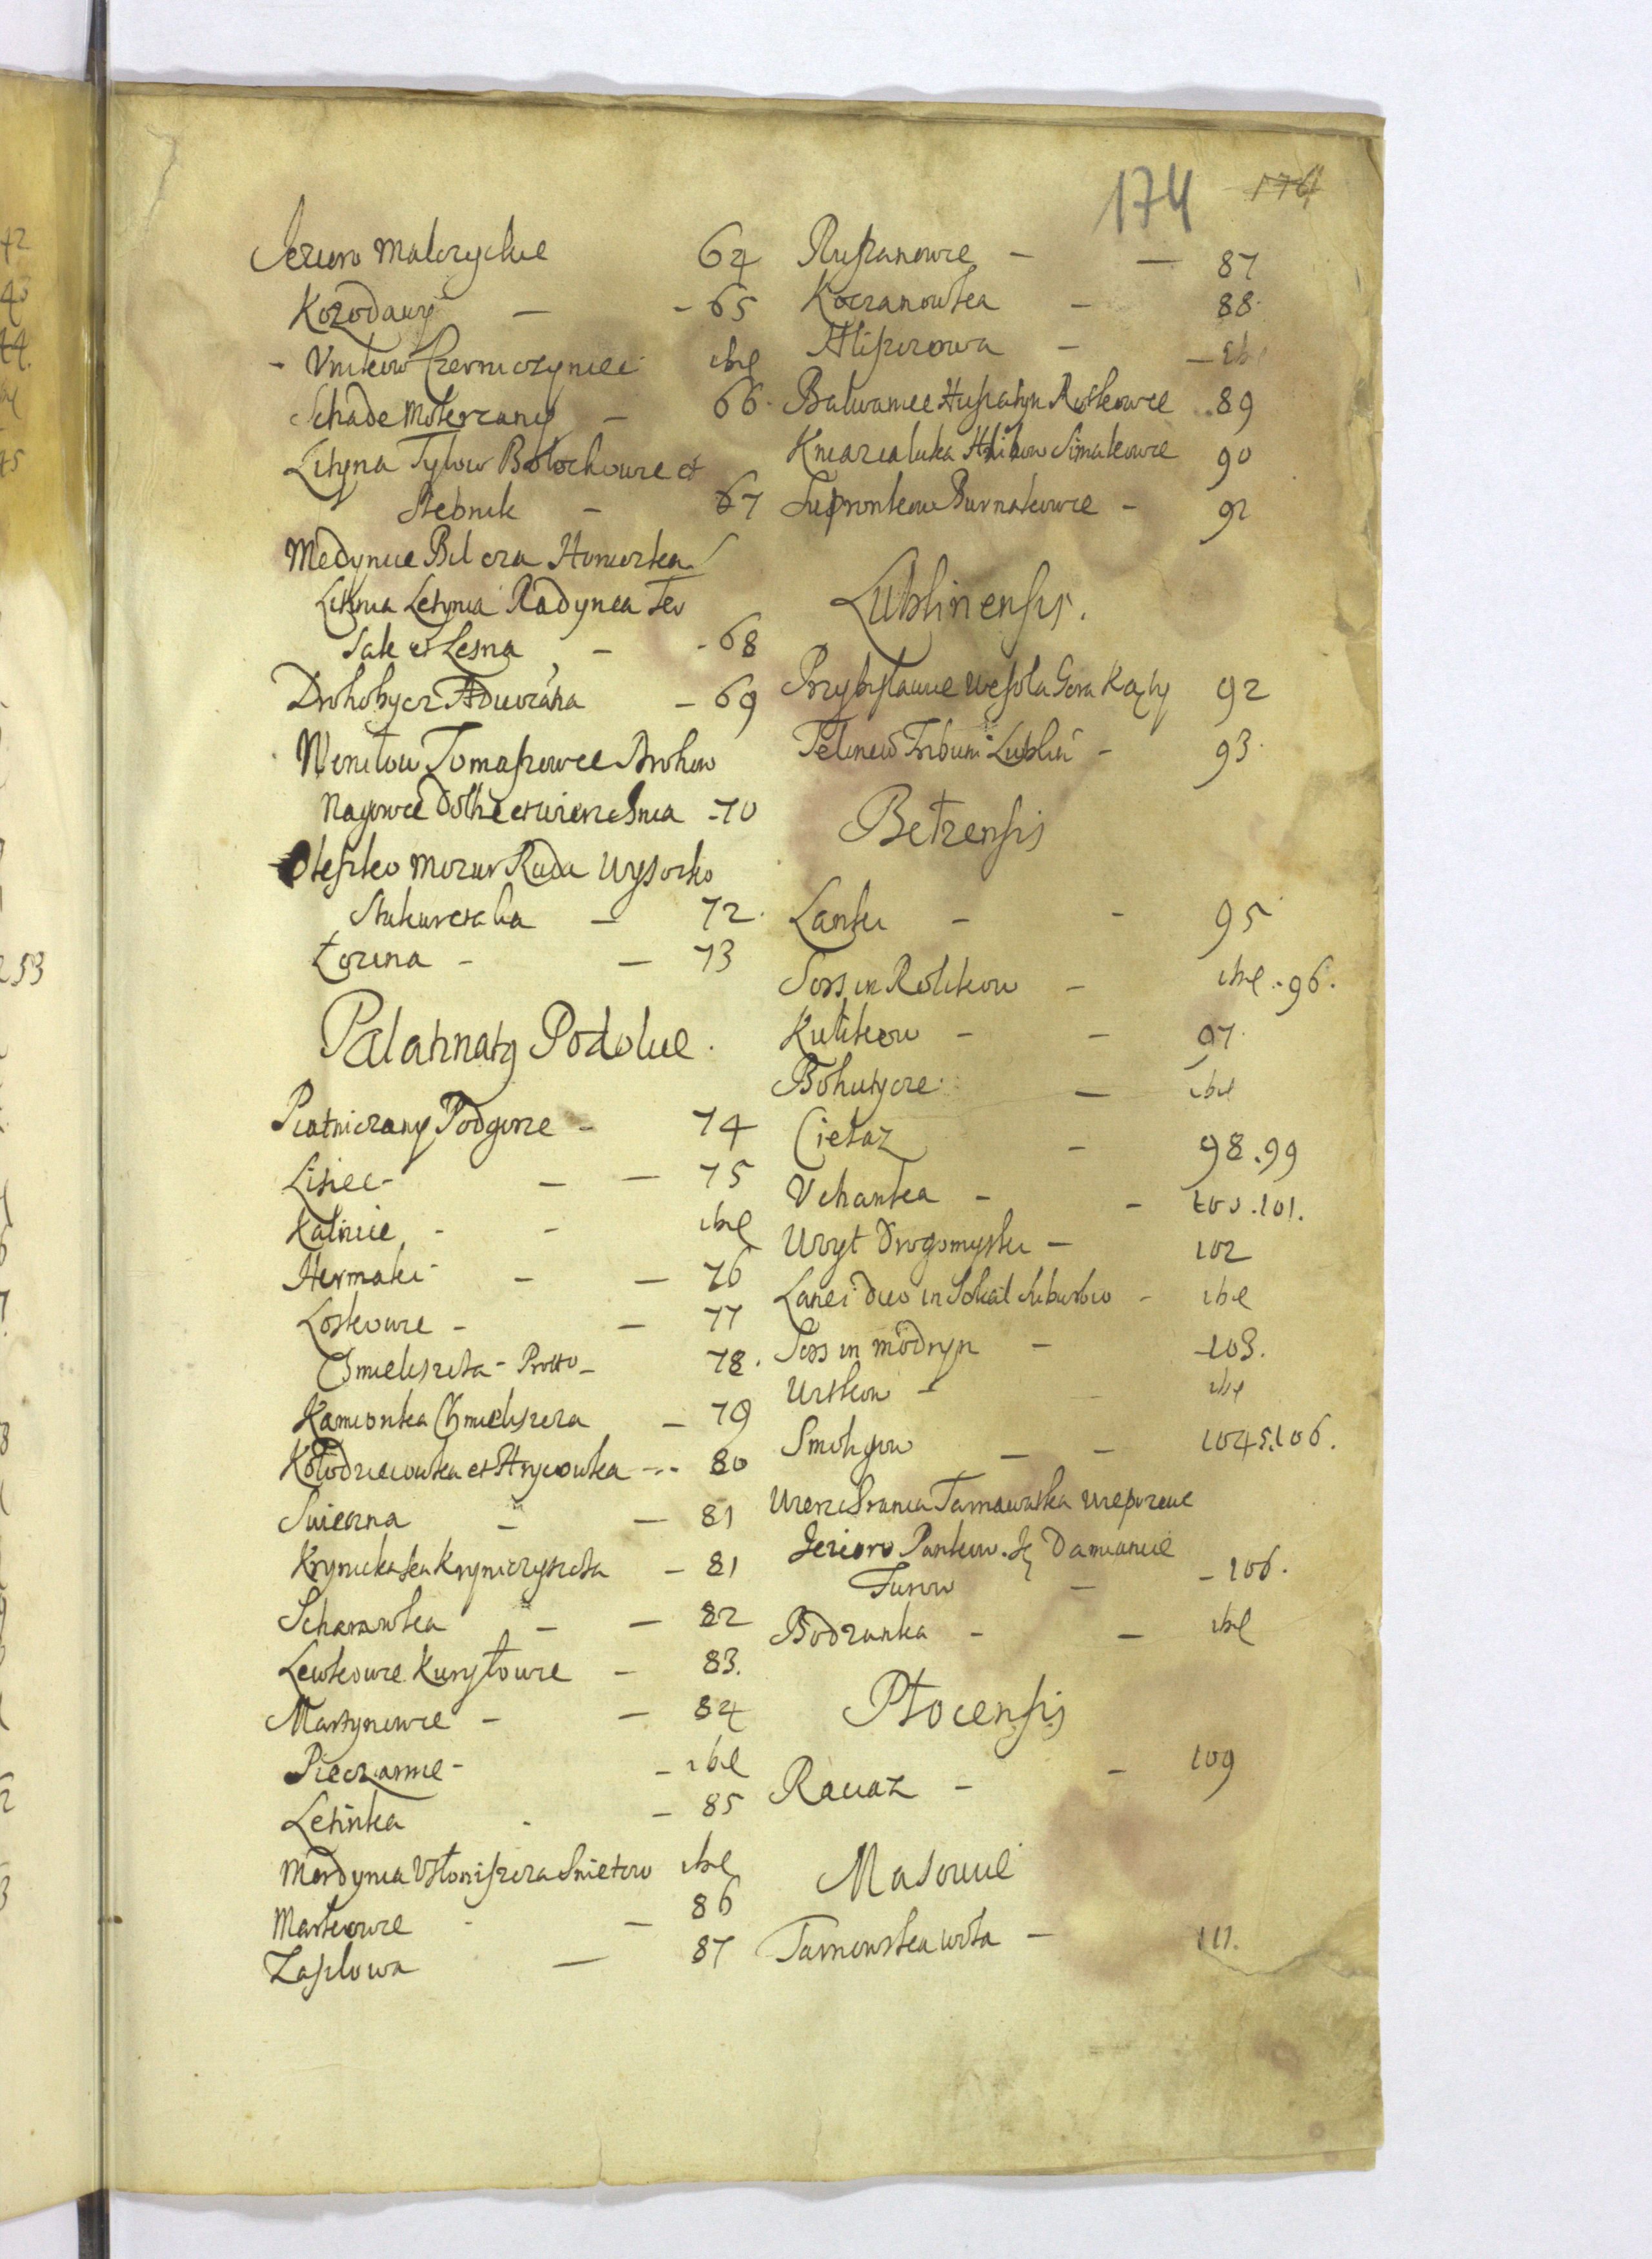 174 176
Jezioro Malczyckie 64
Kozodawy — - 65
- Vnikow Czerniczyniec ibl
Schade Moterzany - 66.
Litynia Tylow Bolochowce et
Stebnik - 67
Medynice Bilcza Horuczka
Litynia Letynia Radynea Teo
Sale et Lesna - - 68
Drohobycz Advocatia - 69
Wenitow Tomaszowce Brohow
Nagowce Dolhe et Wierzchnia - 70
Oleszko Mozur Ruda Wysocko
— 72.
Łozina - — 73
Palatinatg Podoliae.
Piatniczany Podgorze - 74
Lisiec - — — 75
Kalinie - - ibl
Hermaki - — 76
Loskowce - — 77
Chmieliszcza - 78.
Kamionka Chmieliszcza — 79
Kołodzieiowka et Hrycowka --- 80
Swierzna - — 81
Krynicka sea Kryniczyszcza - 81
Scharawka - — 82
Lewkowce Kuryłowce - 83.
Martynowce - — 84
Pieczarnie - - ibl
Letinka - - 85
Merdynia Vstoniszcza Snietow ibl
Markowce - — 86
Zaslowa — 87
Ruszanowce - — 87
Koczanowka - 88.
Hliszczowa - — ibl
Balwanice Husiatyn Roskowce 89
Kniazialuka Hlibow Simakowce 90
Suprunkow Burnakowce - 92
Lublinensis.
Przybysławice Wesola Gora Kąty 92
Pelinew Tribuni Lublin - 93.
Bełzensis
Lanki - - 95
Soss in Rolikow - ibl. 96.
Kulikow - - 97.
Bohutycze — ibl
Cietaz - 98.99
Vchanka - - 100.101.
Woyt Drogomyski - 102
Lanei duo in Sokal suburbio - ibl
Soss in modryn - - 103.
Urskow - - ibl
Smoligow — - 104 5.106.
Wierzchrania Tarnawatka Wieprzene
Jezioro Pankow. Damianie
Turow - - 106.
Bodzanka - — ibl
Płocensis
Raciaz - - 109
Masovie
Tarnowska wola - 111.